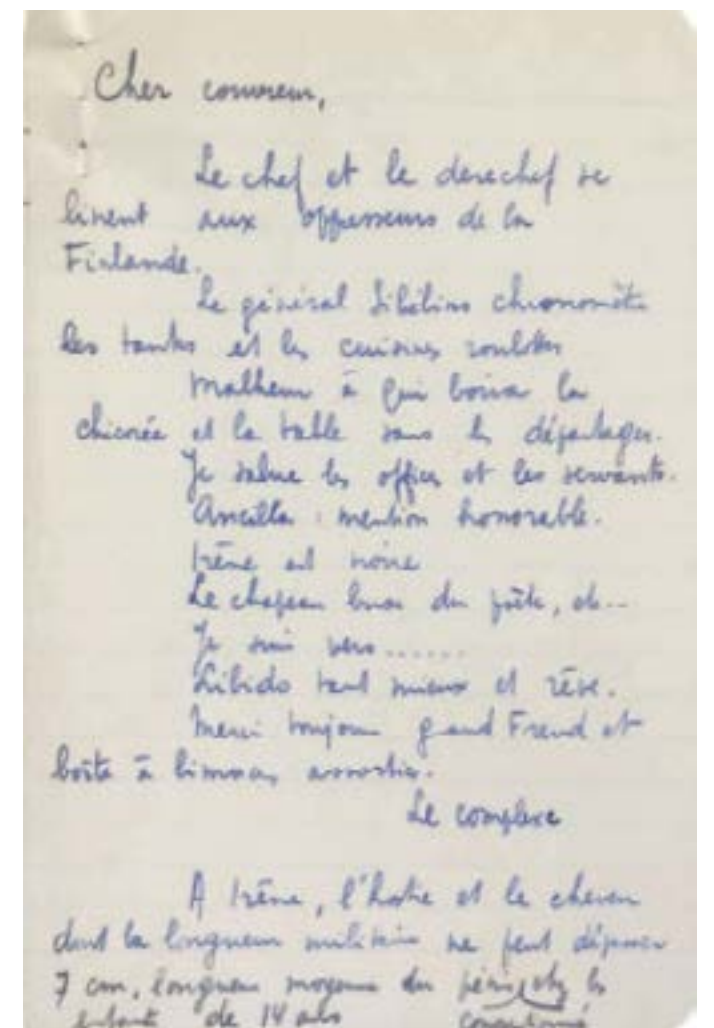 Cher
Le chef et le derechef se
livrent aux oppresseurs de la
Finlande.
Le général chronomètre
les tanks et les cuisines roulottes
Malheur à qui boira la
chicorée et la table sans les
Je salue les offices et les servants.
Ancilla : mention honorable.
Irène est noire
Le chapeau du
Je suis vers ......
Libido tant mieux et rêve.
Merci toujours grand Freud et
boîte à limaces assorties.
Le complexe
A Irène, l'hostie et le cheveu
dont la longueur militaire ne peut dépasser
7 cm, longueur moyenne du pénis chez les
enfants de 14 ans